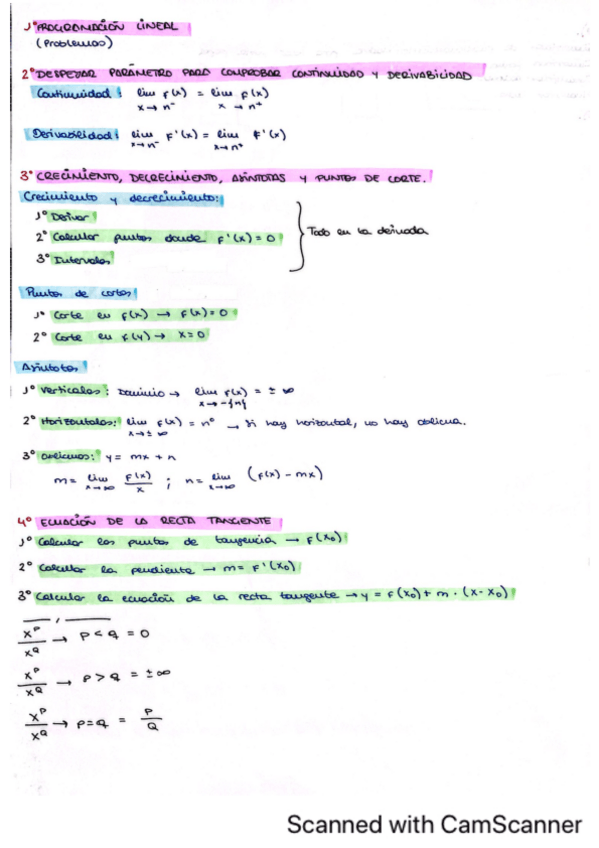 1º PROGRAMACIÓN LINEAL
(Problemas)
2º DESPEJAR PARÁMETRO PARA COMPROBAR CONTINUIDAD Y DERIVABILIDAD
Continuidad: lim f(x) = lim f(x)
x→n⁻ x→n⁺
Derivabilidad: lim f'(x) = lim f'(x)
x→n⁻ x→n⁺
3º CRECIMIENTO, DECRECIMIENTO, ASÍNTOTAS Y PUNTOS DE CORTE.
Crecimiento y decrecimiento:
1º Derivar
2º Calcular puntos donde f'(x) = 0
3º Intervalos
Todo en la derivada
Puntos de cortes
1º Corte en f(x) → f(x) = 0
2º Corte en f(y) → x = 0
Asíntotas
1º Verticales: Dominio → lim f(x) = ± ∞
x→-{n}
2º Horizontales: lim f(x) = nº → Si hay horizontal, no hay oblicua.
x→± ∞
3º Oblicuas: y = mx + n
m = lim f(x)/x ; n = lim (f(x) - mx)
x→∞ x→∞
4º ECUACIÓN DE LA RECTA TANGENTE
1º Calcular los puntos de tangencia → f(x₀)
2º Calcular la pendiente → m = f'(x₀)
3º Calcular la ecuación de la recta tangente → y = f(x₀) + m · (x - x₀)
x^P/x^Q → P < Q = 0
x^P/x^Q → P > Q = ± ∞
x^P/x^Q → P = Q = P/Q
Scanned with CamScanner